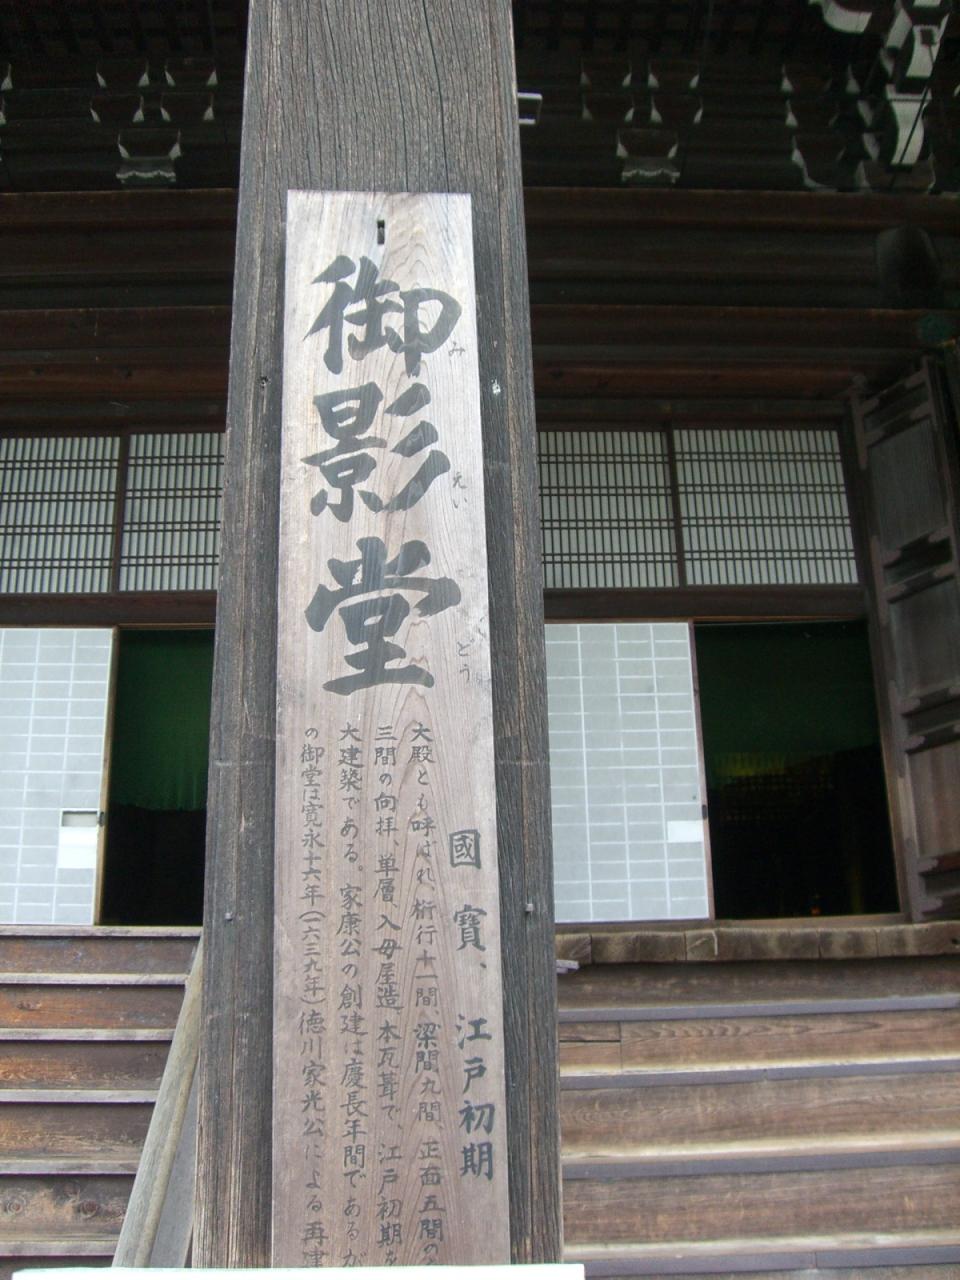 御影堂
み
えい
どう
國寶、江戸初期
大殿とも呼ばれ、桁行十一間、梁間九間、正面五間の
三間の向拝、単層、入母屋造、本瓦葺で、江戸初期を
大建築である。家康公の創建は慶長年間であるが
の御堂は寛永十六年(一六三九年)徳川家光公による再建